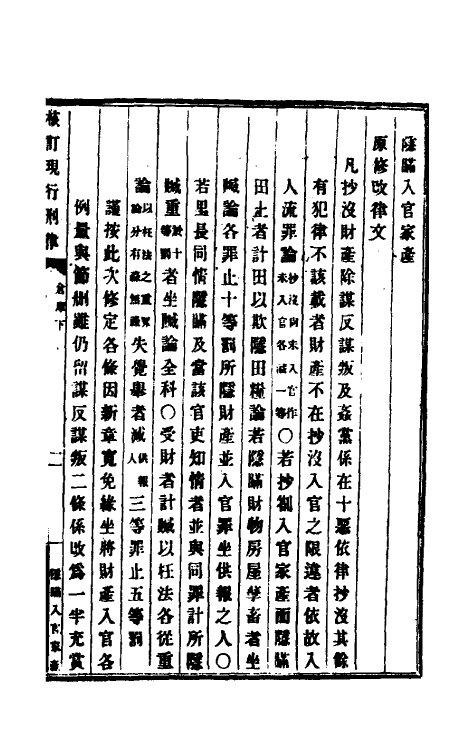 隱瞞入官家產
原修改律文
凡抄沒財產除謀反謀叛及姦黨係在十惡依律抄沒其餘
有犯律不該載者財產不在抄沒入官之限違者依故入
人流罪論抄沒尚未入官作未入官各減一等○若抄劄入官家產而隱瞞
田土者計田以欺隱田糧論若隱瞞財物房屋孳畜者坐
贓論各罪止十等罰所隱財產並入官罪坐供報之人○
若里長同情隱瞞及當該官吏知情者並與同罪計所隱
贓重於十等罰者坐贓論全科○受財者計贓以枉法各從重
論以枉法之重罪論分有祿無祿失覺舉者減供報人三等罪止五等罰
謹按此次修定各條因新章寬免緣坐將財產入官各
例量與節刪雖仍留謀反謀叛二條係改爲一半充賞
核訂現行刑律
倉庫下
二
隱瞞入官家產